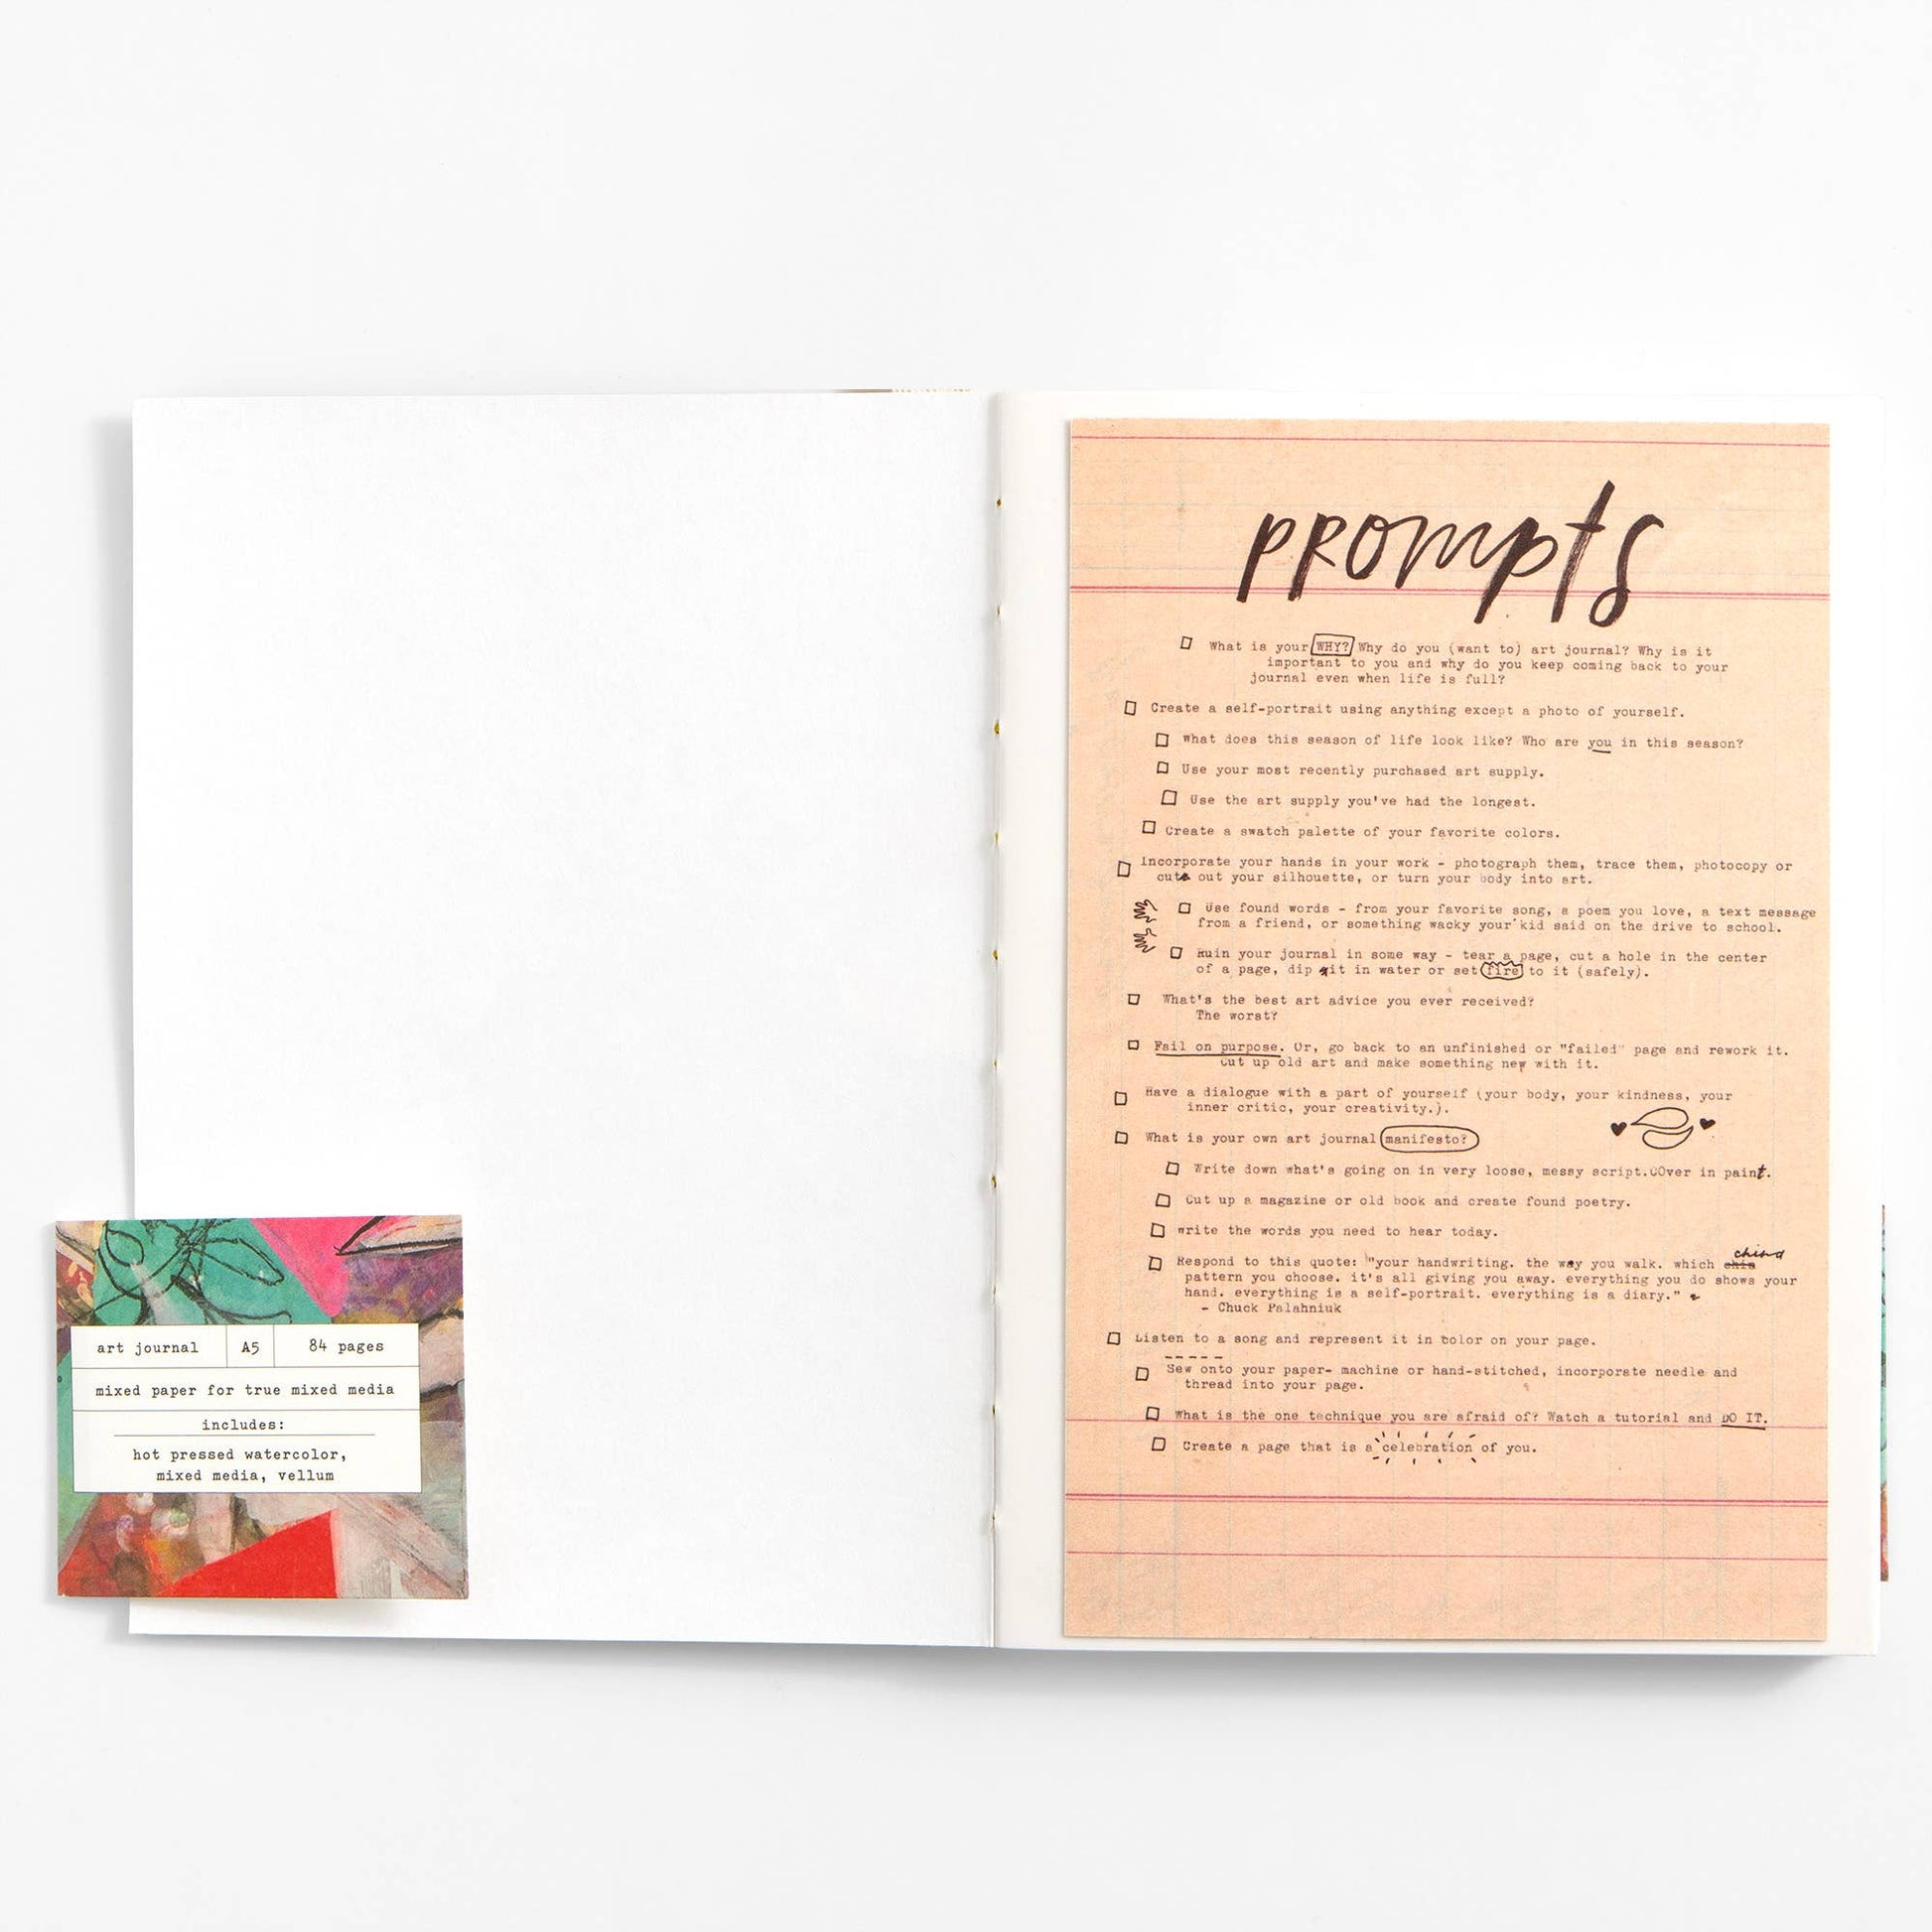 prompts
What is your WHY? Why do you (want to) art journal? Why is it
important to you and why do you keep coming back to your
journal even when life is full?
Create a self-portrait using anything except a photo of yourself.
What does this season of life look like? Who are you in this season?
Use your most recently purchased art supply.
Use the art supply you've had the longest.
Create a swatch palette of your favorite colors.
Incorporate your hands in your work - photograph them, trace them, photocopy or
cut out your silhouette, or turn your body into art.
Use found words - from your favorite song, a poem you love, a text message
from a friend, or something wacky your kid said on the drive to school.
Ruin your journal in some way - tear a page, cut a hole in the center
of a page, dip it in water or set fire to it (safely).
What's the best art advice you ever received?
The worst?
Fail on purpose. Or, go back to an unfinished or "failed" page and rework it.
Cut up old art and make something new with it.
Have a dialogue with a part of yourself (your body, your kindness, your
inner critic, your creativity.).
What is your own art journal manifesto?
Write down what's going on in very loose, messy script.COver in paint.
Cut up a magazine or old book and create found poetry.
Write the words you need to hear today.
china
Respond to this quote: "your handwriting. the way you walk. which
pattern you choose. it's all giving you away. everything you do shows your
hand. everything is a self-portrait. everything is a diary."
- Chuck Palahniuk
Listen to a song and represent it in color on your page.
Sew onto your paper- machine or hand-stitched, incorporate needle and
thread into your page.
What is the one technique you are afraid of? Watch a tutorial and DO IT.
Create a page that is a celebration of you.
art journal A5 84 pages
mixed paper for true mixed media
includes:
hot pressed watercolor,
mixed media, vellum